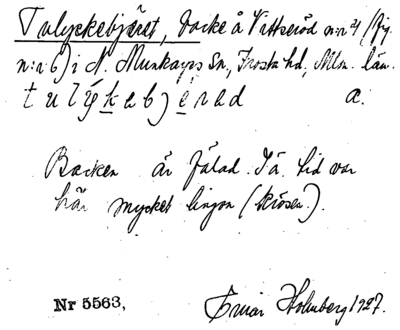 Tulyckebjäret, backe å Vittseröd n:r 4 (fig.
n:r 6) i N. Munkarps Sn., Frosta hd, Mlm. län.
a.
Backen är fälad. I ä. tid var
här mycket lingon (krösen).
Nr 5563, Einar Holmberg 1927.